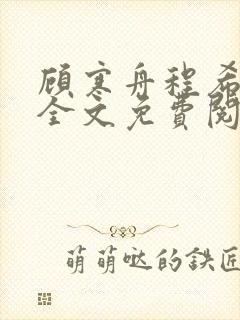 顾寒舟程希
全文免費閱
萌萌哒的鉄匠